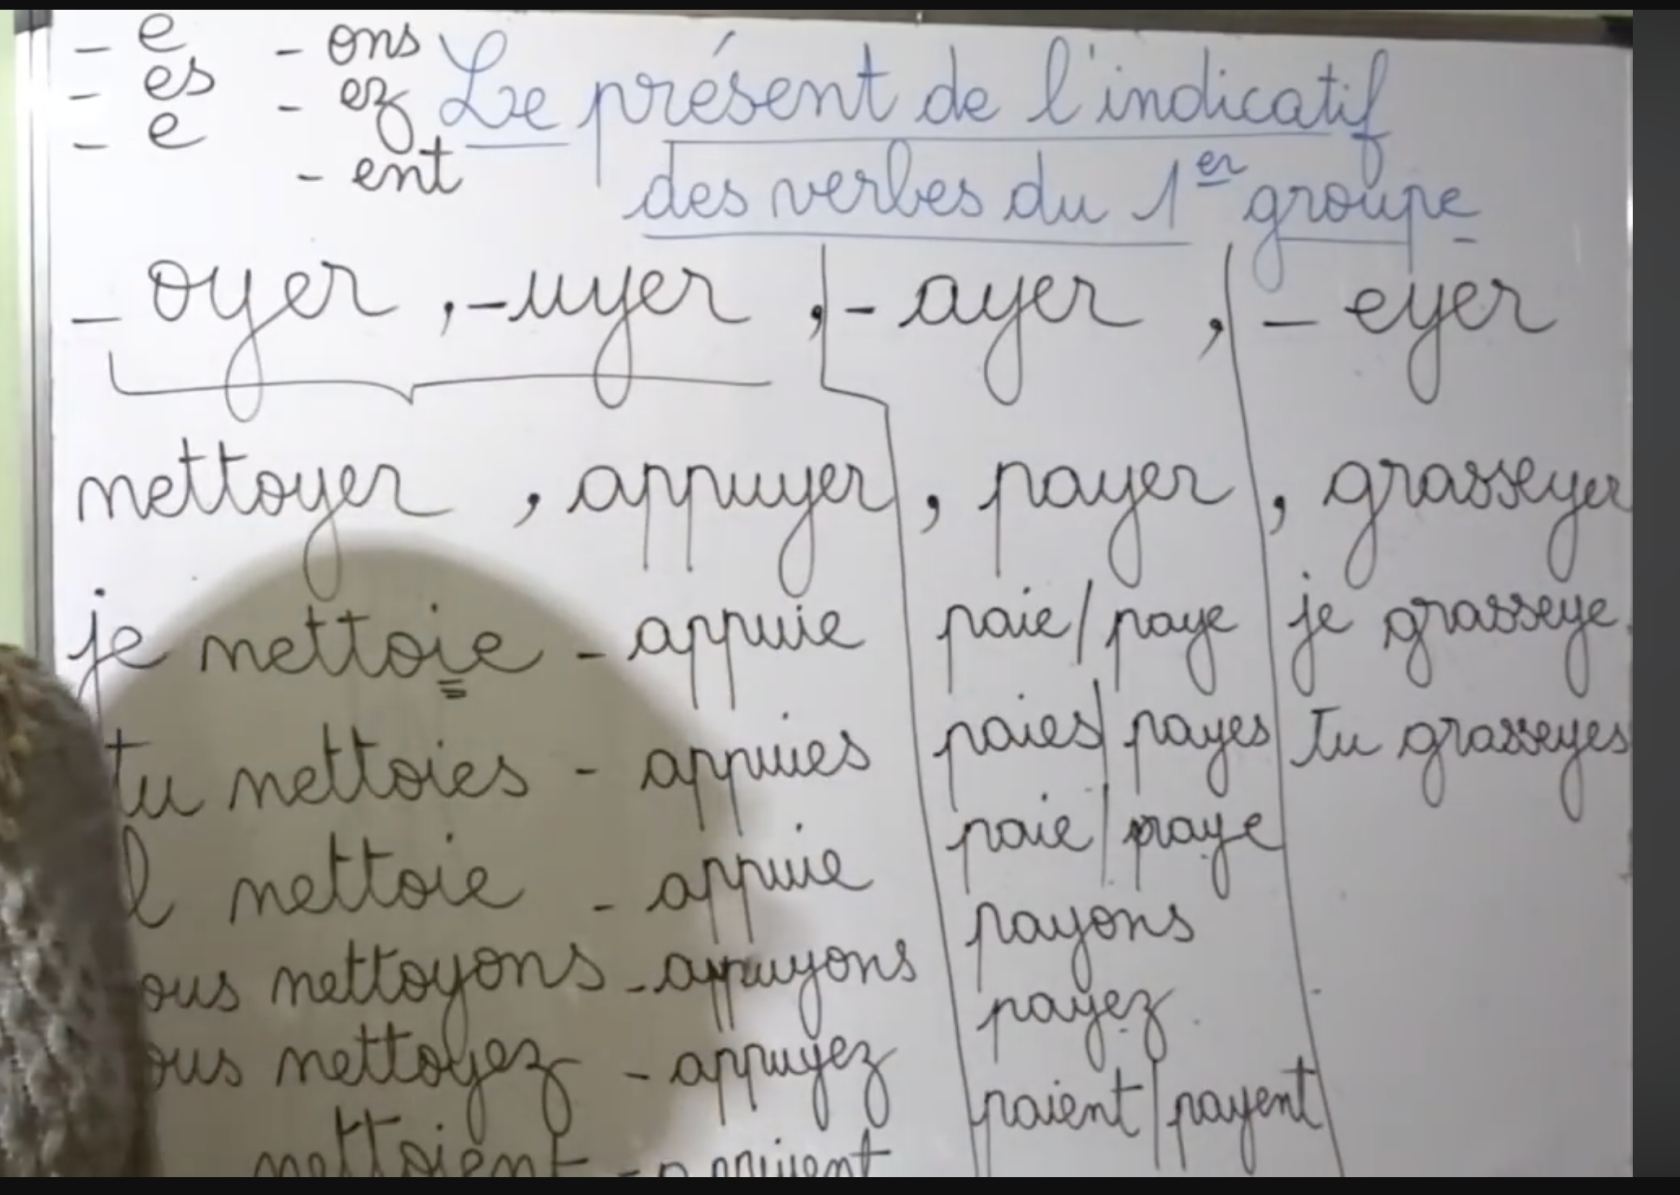 - e - ons
- es - ez
- e - ent
Le présent de l'indicatif
des verbes du 1er groupe
- oyer , - uyer , - ayer , - eyer
nettoyer , appuyer , payer , grasseyer
je nettoie - appuie paie / paye je grasseye
tu nettoies - appuies paies / payes Tu grasseyes
l nettoie - appuie paie / paye
ous nettoyons - appuyons payons
ous nettoyez - appuyez payez
nettoient - appuient paient / payent